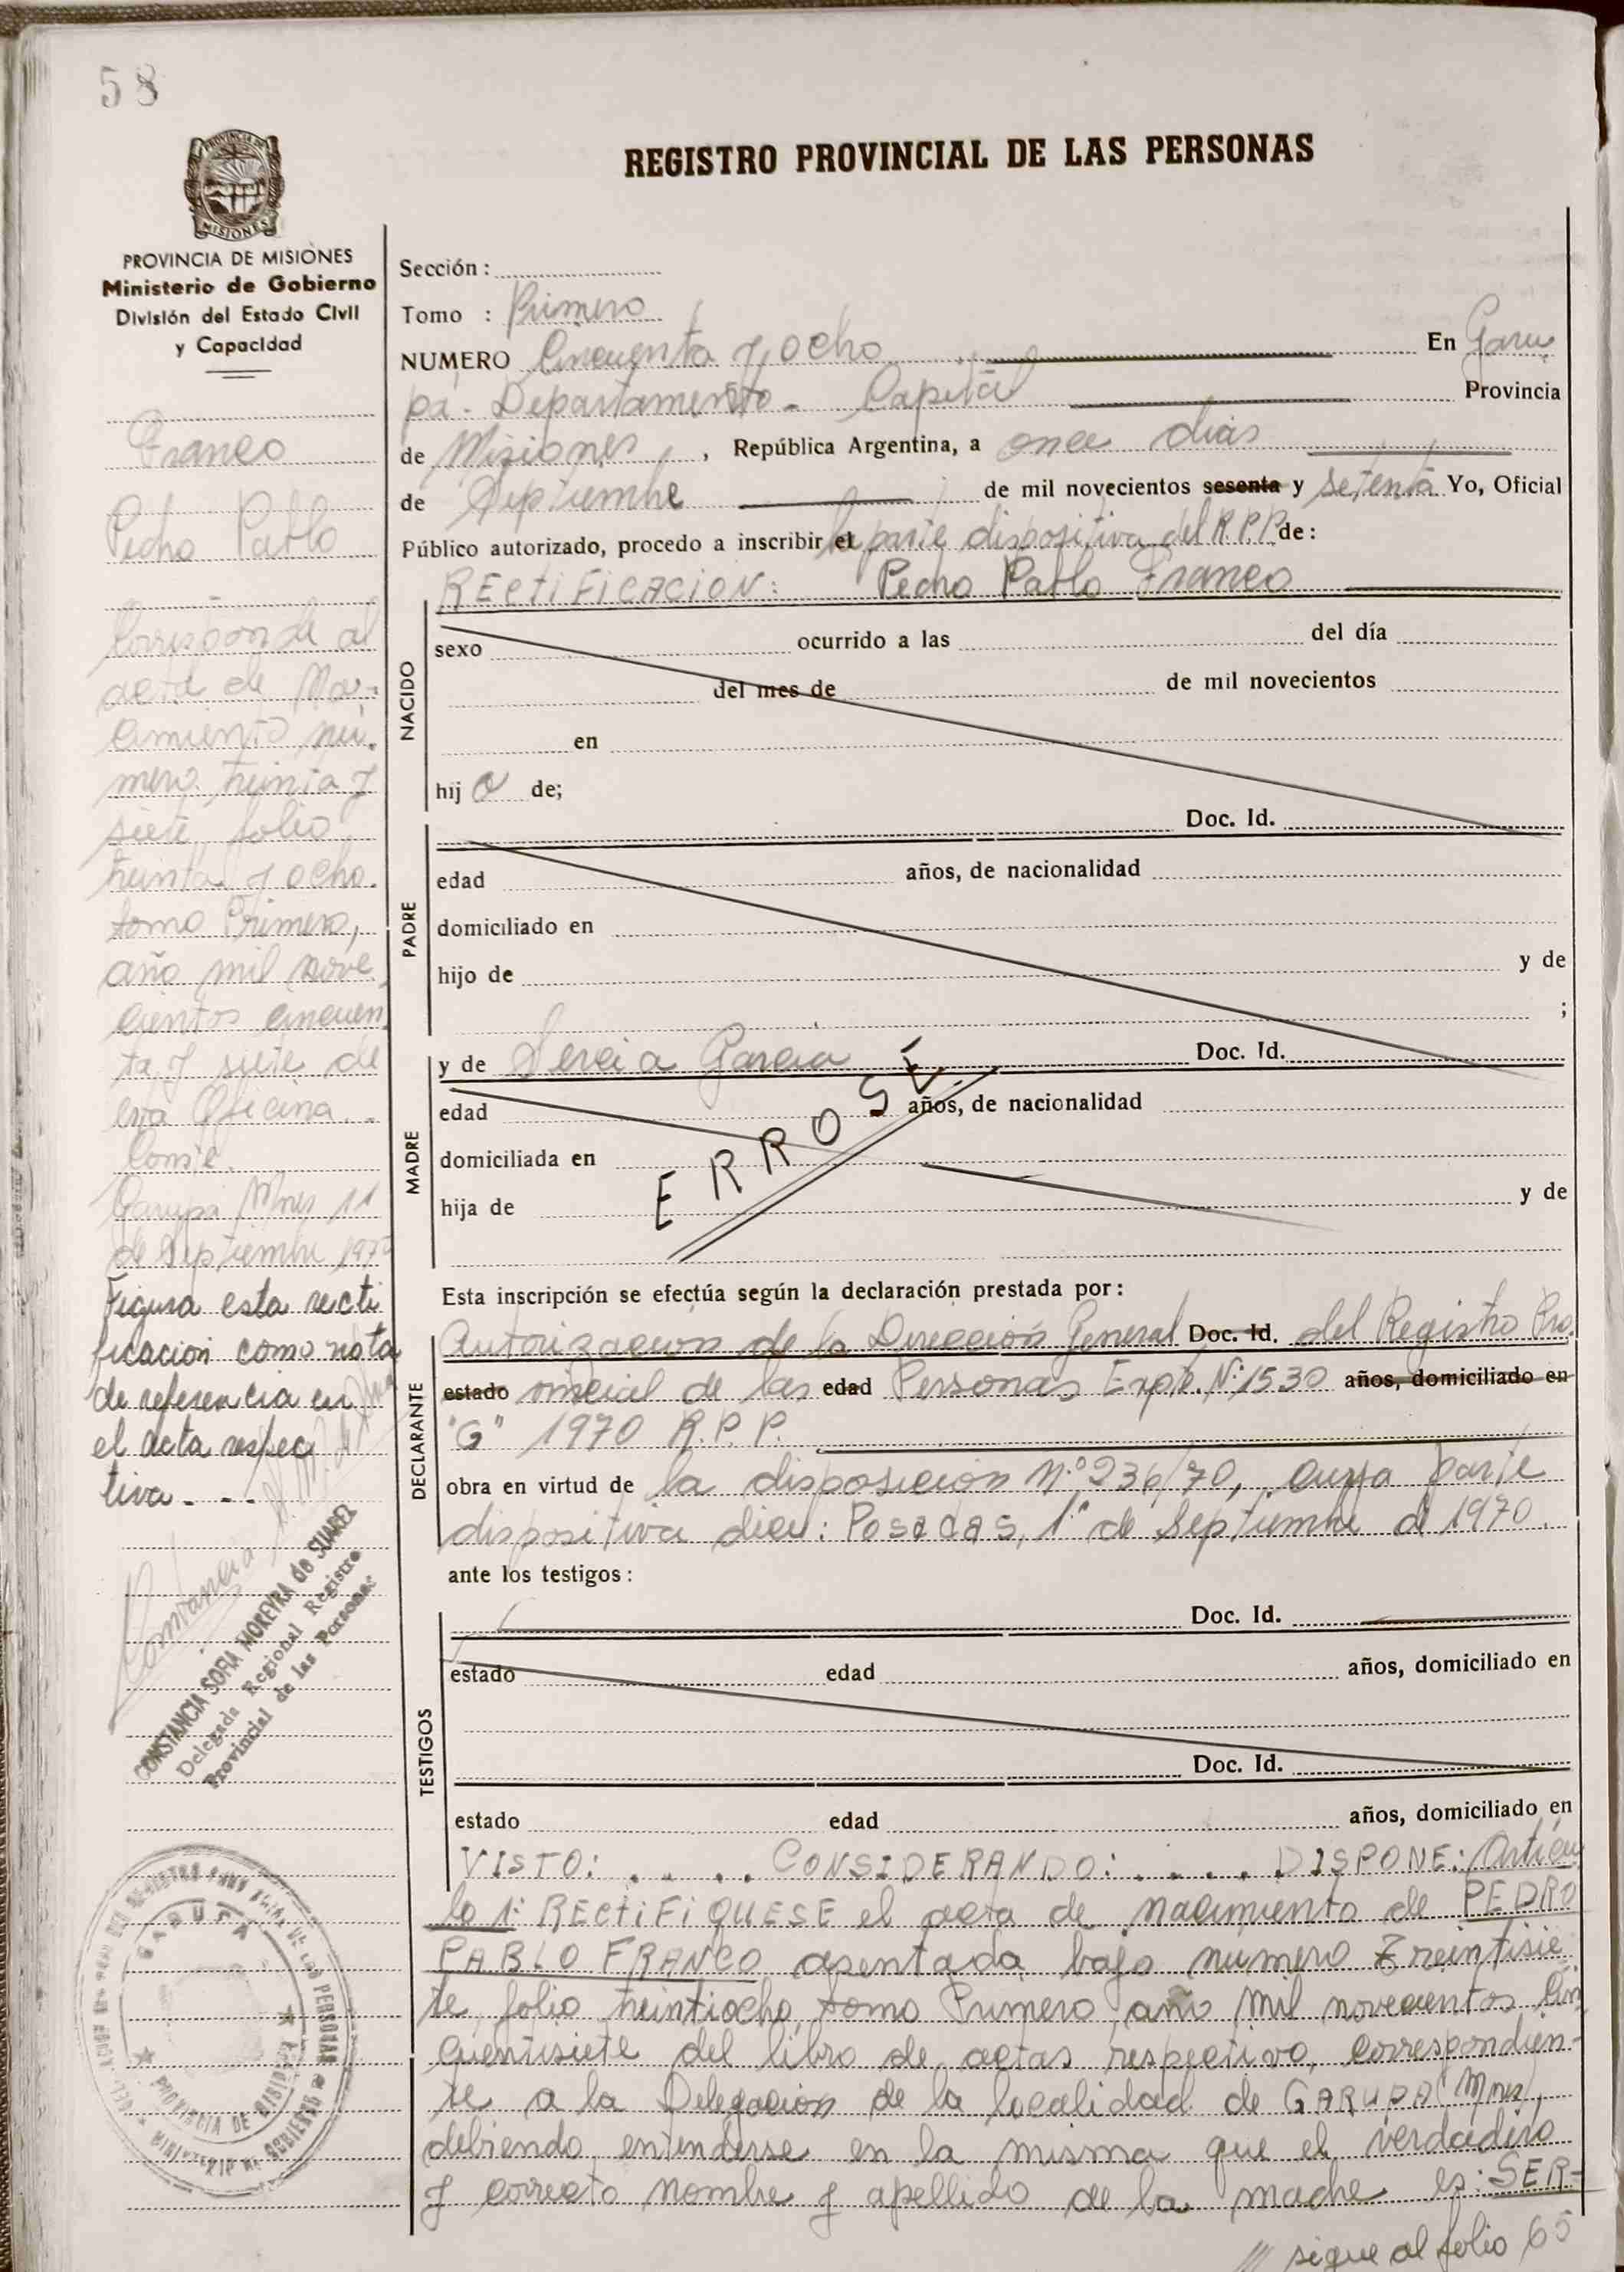 58
REGISTRO PROVINCIAL DE LAS PERSONAS
PROVINCIA DE MISIONES
Ministerio de Gobierno
División del Estado Civil
y Capacidad
Franco
Pedro Pablo
Corresponde al
acta de Na-
cimiento nú-
mero treinta y
siete folio
treinta y ocho.
tomo Primero,
año mil nove
cientos cincuen
ta y siete de
esta Oficina.-
Conste.
Garupa Mnes 11
de Septiembre 1970
Figura esta recti
ficacion como nota
de referencia en
el acta respec
tiva - . -
CONSTANCIA SOFIA MOREYRA de SUAREZ
Delegada Regional Registro
Provincial de las Personas
GARUPA
PROVINCIA DE MISIONES
Sección :
Tomo : Primero
NUMERO Cincuenta y ocho En Garu
pá - Departamento - Capital Provincia
de Misiones , República Argentina, a once dias
de Septiembre de mil novecientos sesenta y setenta Yo, Oficial
Público autorizado, procedo a inscribir el la parte dispositiva del R.P.P. de :
RECTIFICACION: Pedro Pablo Franco
NACIDO
sexo ocurrido a las del día
del mes de de mil novecientos
en
hij o de;
PADRE
Doc. Id.
edad años, de nacionalidad
domiciliado en
hijo de y de
;
MADRE
y de Sercia Garcia Doc. Id.
edad años, de nacionalidad
domiciliada en
hija de y de
ERROSE
Esta inscripción se efectúa según la declaración prestada por :
DECLARANTE
Autorizacion de la Dirección General Doc. Id. del Registro Pro.
estado vincial de las edad Personas Expte. Nº 1530 años, domiciliado en
"G" 1970 R.P.P.
obra en virtud de la disposición n.º 236/70, cuya parte
dispositiva dice: Posadas, 1º de Septiembre de 1970.
ante los testigos :
TESTIGOS
Doc. Id.
estado edad años, domiciliado en
Doc. Id.
estado edad años, domiciliado en
VISTO: . . . . CONSIDERANDO: . . . . DISPONE: Artícu
lo 1º RECTIFIQUESE el acta de nacimiento de PEDRO
PABLO FRANCO asentada bajo número Treintisie
te, folio treintiocho, tomo Primero, año mil novecientos cin
cuentisiete del libro de actas respectivo, correspondien-
te a la Delegacion de la localidad de GARUPA (Mnes),
debiendo entenderse en la misma que el verdadero
y correcto nombre y apellido de la madre es: SER-
/// sigue al folio 65